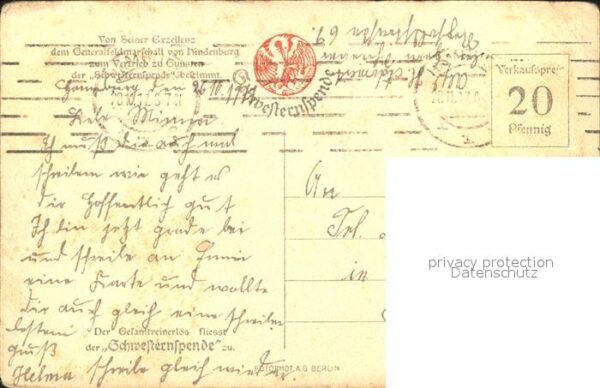 Von Seiner Exzellenz
dem Generalfeldmarschall von Hindenburg
zum Vertrieb zu Gunsten
der „Schwesternspende" bestimmt.
Schwesternspende
Verkaufspreis
20
Pfennig
Hamburg den 26.10.17
Liebe Minna
Ich muß dir auch mal
schreiben wie geht es
dir Hoffentlich gut
Ich bin jetzt grade bei
und schreibe an
eine Karte und wollte
dir auch gleich eine schreiben
besten
Gruß
Helma schreibe gleich wieder.
An
Frl.
in
Der Gesamtreinerlös fliesst
der „Schwesternspende" zu.
ROTOPHOT A.G. BERLIN
privacy protection
Datenschutz